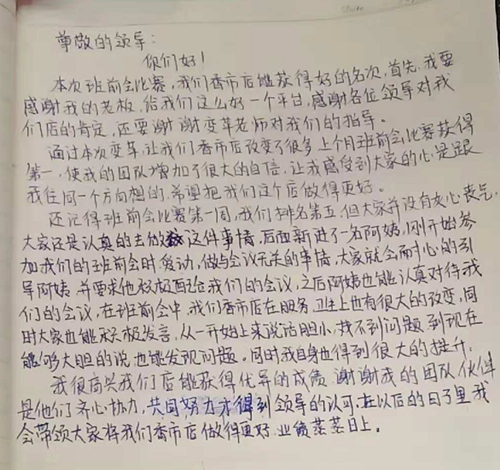 尊敬的领导:
你们好!
本次班前会比赛,我们香市店能获得好的名次,首先,我要
感谢我的老板,给我们这么好一个平台,感谢各位领导对我
们店的肯定,还要谢谢变革老师对我们的指导。
通过本次变革,让我们香市店改变了很多上个月班前会比赛获得
第一,使我的团队增加了很大的自信,让我感受到大家的心是跟
我往同一个方向想的,希望把我们这个店做得更好。
还记得班前会比赛第一周,我们排名第五,但大家并没有灰心丧气,
大家还是认真的去做这件事情,后面新进了一名阿姨,刚开始参
加我们的班前会时 ,做与会议无关的事情,大家就会耐心的引
导阿姨,并要求他积极配合我们的会议,之后阿姨也能认真对待我
们的会议,在班前会中,我们香市店在服务,卫生上也有很大的改变,同
时大家也能积极发言,从一开始上来说话胆小,找不到问题到现在
能够大胆的说也能发现问题。同时我自身也得到很大的提升,
我很高兴我们店能获得优异的成绩,谢谢我的团队伙伴
是他们齐心协力,共同努力才得到领导的认可,在以后的日子里我
会带领大家将我们香市店做得更好,业绩蒸蒸日上。